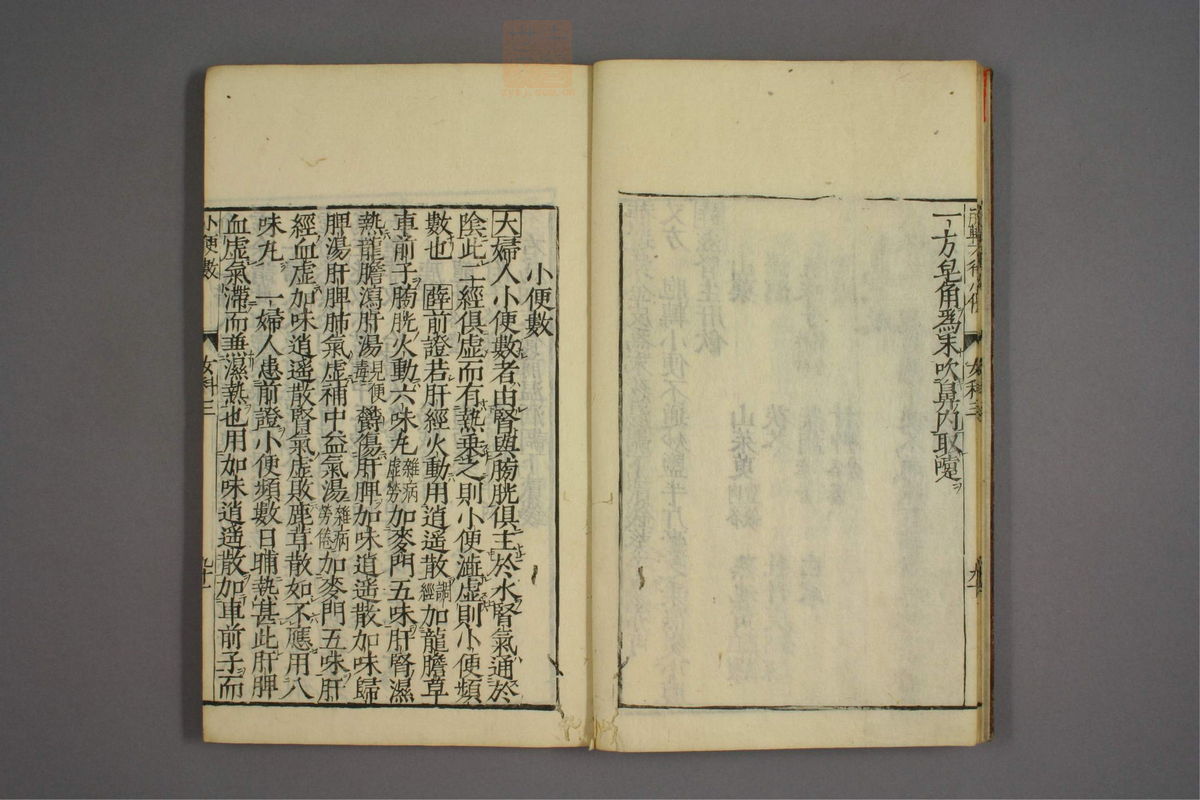 一方皂角為末吹鼻内取嚏
小便數
大婦人小便數者由腎與膀胱俱主於水腎氣通於
陰此二經俱虛而有熱乗之則小便澁虛則小便頻
數也 薛前證若肝經火動用逍遥散調經加龍膽草
車前子膀胱火動六味丸雜病虛勞加麥門五味肝腎濕
熱龍膽瀉肝湯見便毒鬱傷肝脾加味逍遥散加味歸
脾湯肝脾肺氣虛補中益氣湯雜病勞倦加麥門五味肝
經血虛加味逍遥散腎氣虛敗鹿茸散如不應用八
味丸 一婦人患前證小便頻數日晡熱甚此肝脾
血虛氣滯而兼濕熱也用加味逍遥散加車前子而
小便數 女科三